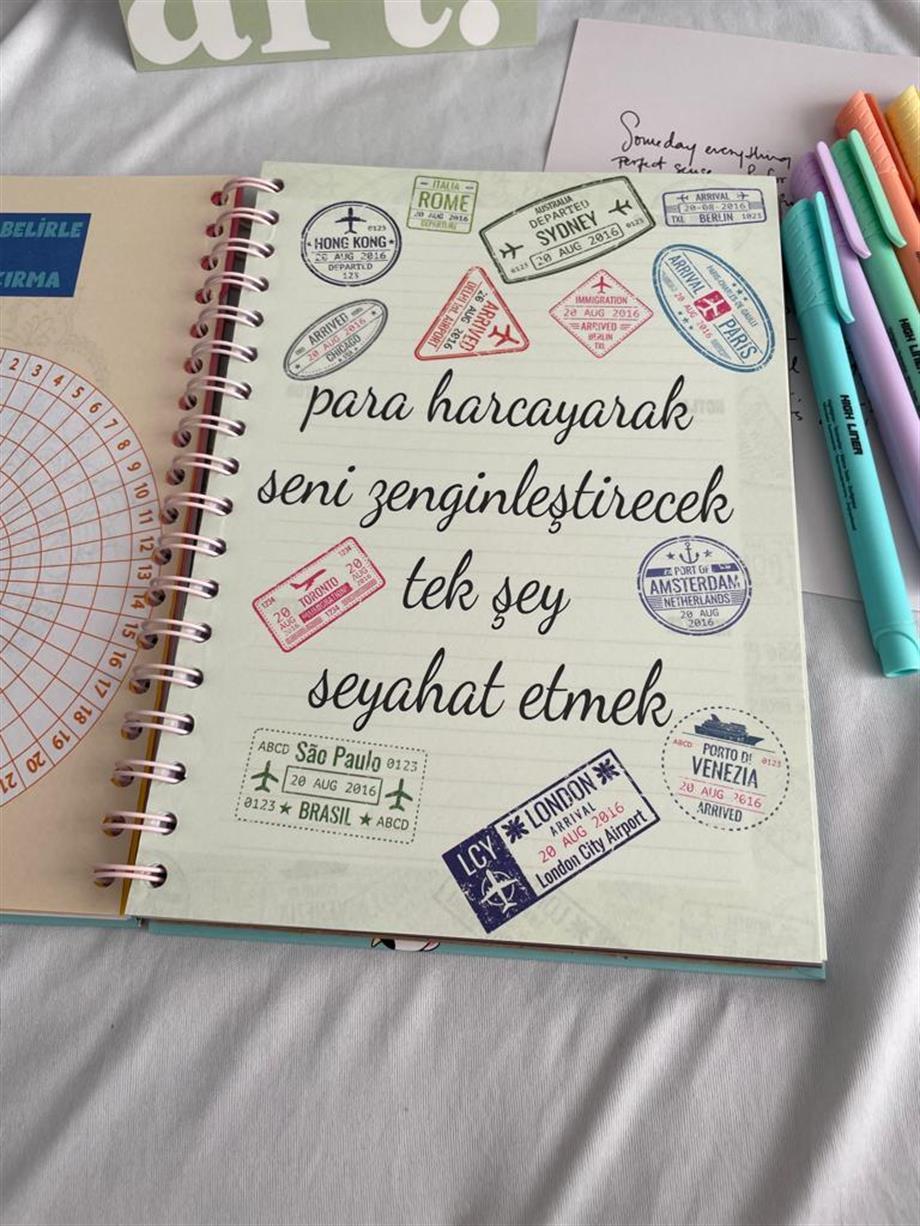 art.
Someday everything
perfect sense
BELİRLE
1 2 3 4 5 6 7 8 9 10 11 12 13 14 15 16 17 18 19 20 21
HONG KONG
20 AUG 2016
DEPARTED
123
0123
ITALIA
ROME
20 AUG 2016
DEPARTURE
AUSTRALIA
DEPARTED
SYDNEY
20 AUG 2016
0123
0123
ARRIVAL
20-08-2016
TXL BERLIN 0123
ARRIVED
20 AUG 2016
CHICAGO
USA
ARRIVED
20 AUG 2016
DELHI Int. AIRPORT
IMMIGRATION
20 AUG 2016
ARRIVED
BERLIN
TXL
ARRIVAL
PARIS-CHARLES DE GAULLE
20 AUG 2016
PARIS
para harcayarak
seni zenginleştirecek
tek şey
seyahat etmek
1234
20
AUG
2016
TORONTO
IMMIGRATION
1234
20
AUG
2016
1234
PORT OF
AMSTERDAM
NETHERLANDS
20 AUG
2016
ABCD São Paulo 0123
20 AUG 2016
0123 ★ BRASIL ★ ABCD
LCY
LONDON
ARRIVAL
20 AUG 2016
London City Airport
PORTO DI
ABCD VENEZIA 0123
20 AUG 2016
ARRIVED
HIGH LINER
HIGH LINER
HIGH LINER